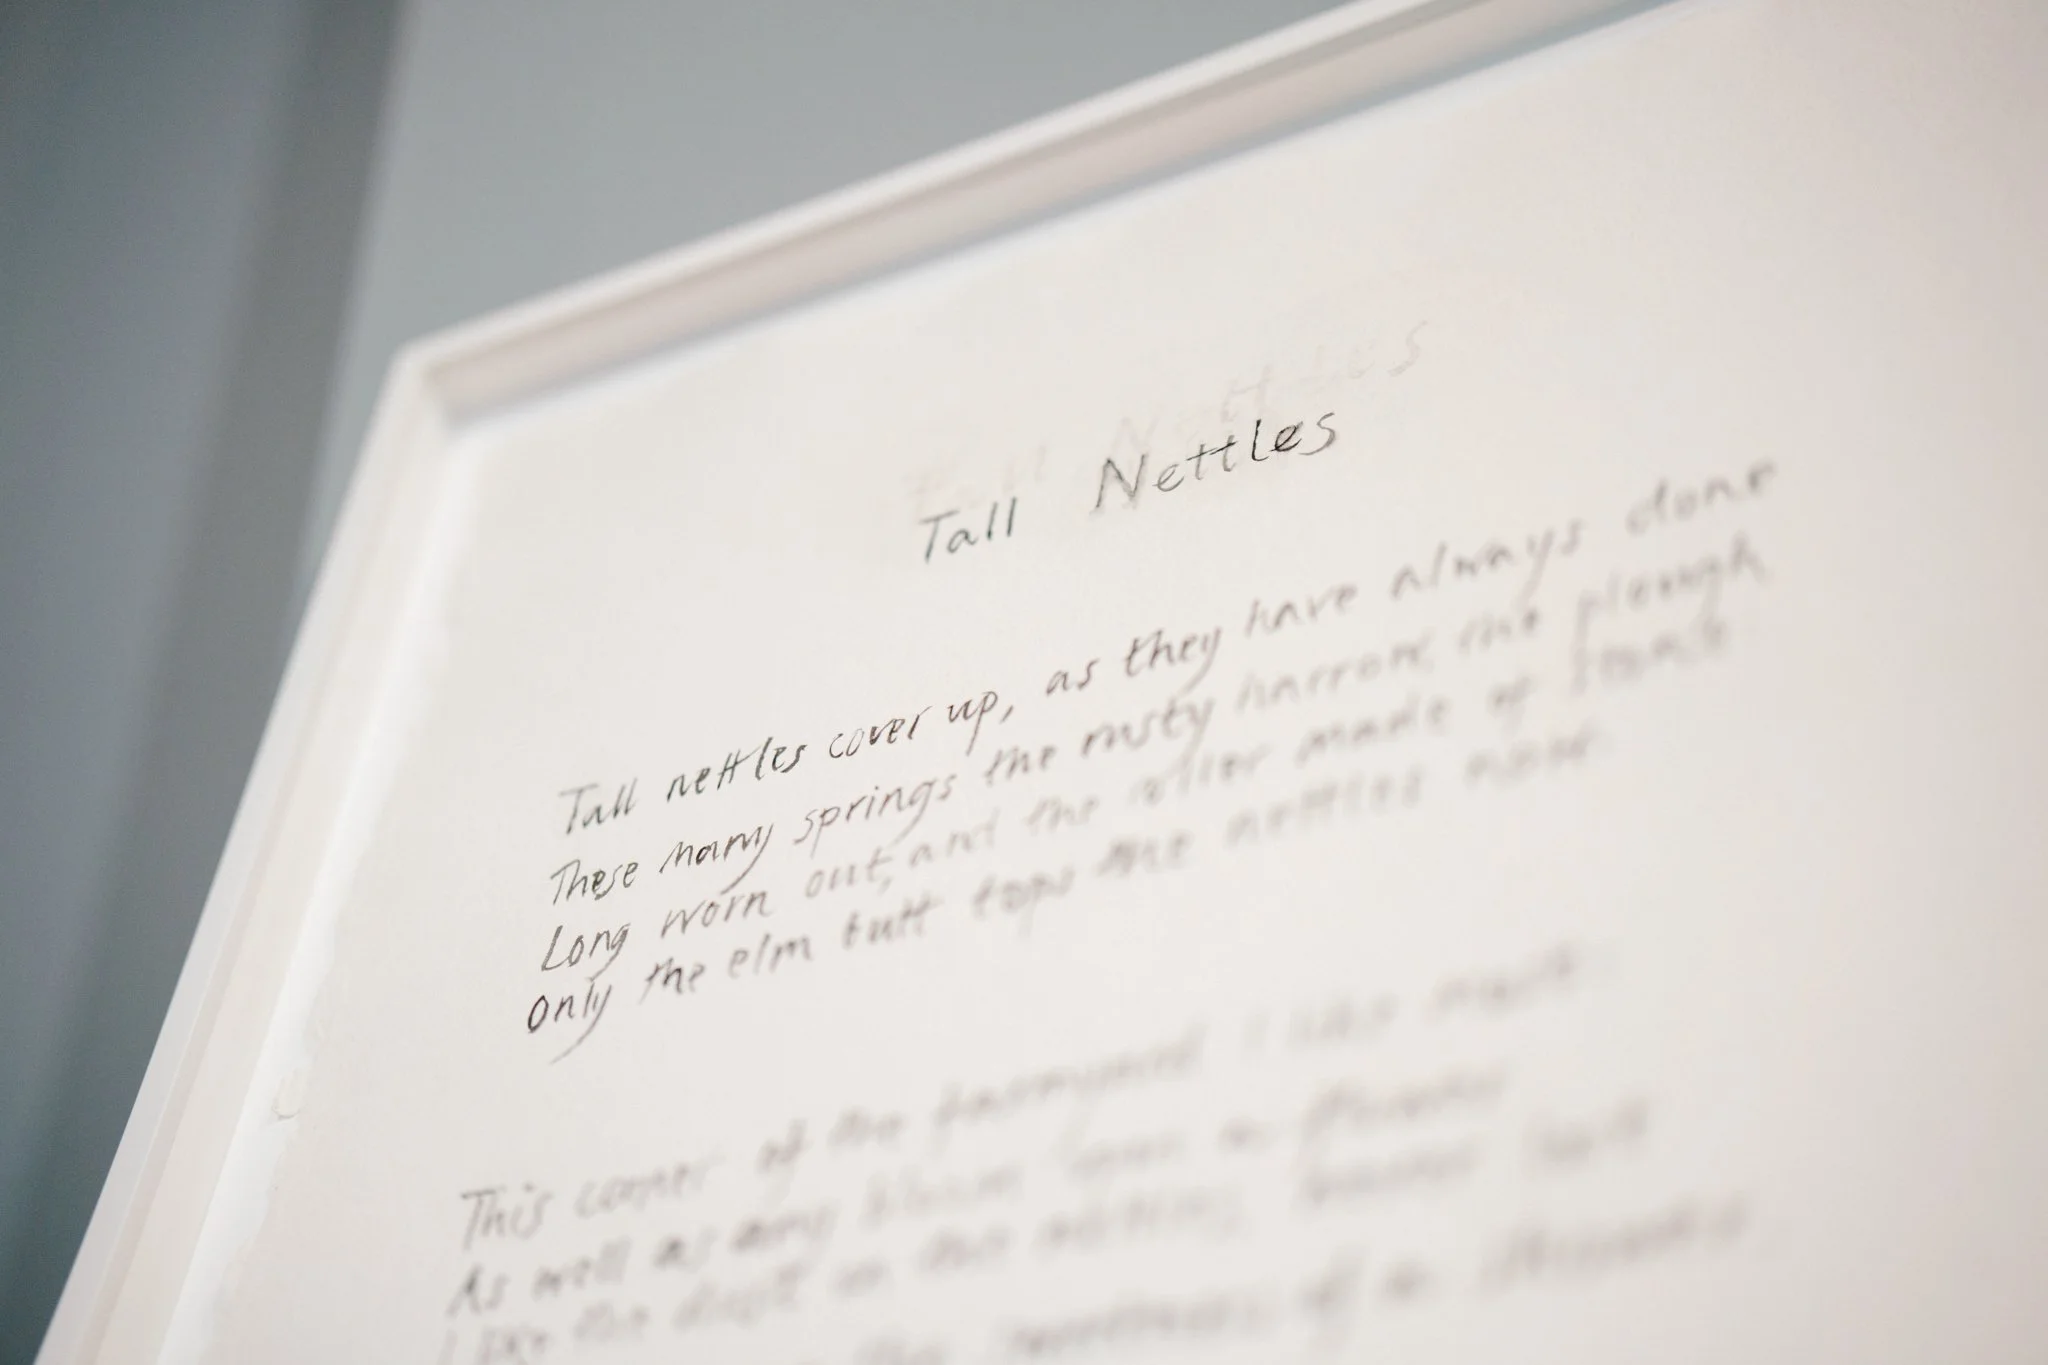 Tall Nettles
Tall Nettles
Tall nettles cover up, as they have always done
These many springs the rusty harrow, the plough
Long worn out, and the roller made of stone.
Only the elm butt tops the nettles now.
This corner of the farmyard I like most
As well as any bloom upon a flower
I like the dust on the nettles, never lost
the sweetness of a shower